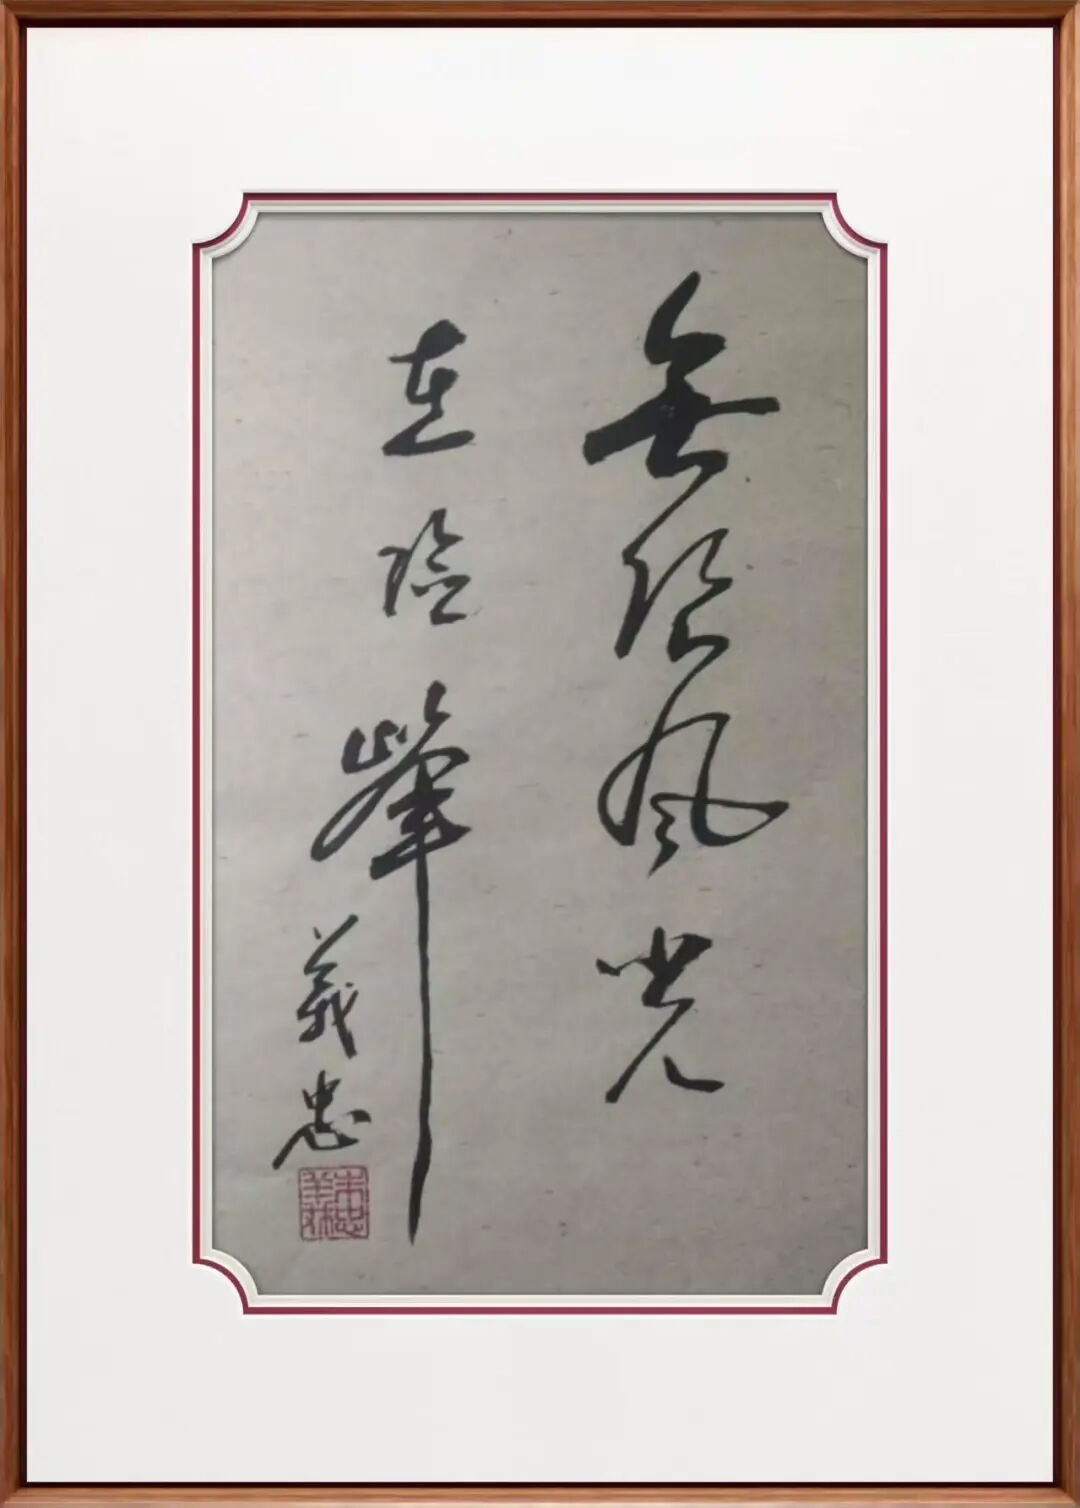 無限風光
在險峰
義忠